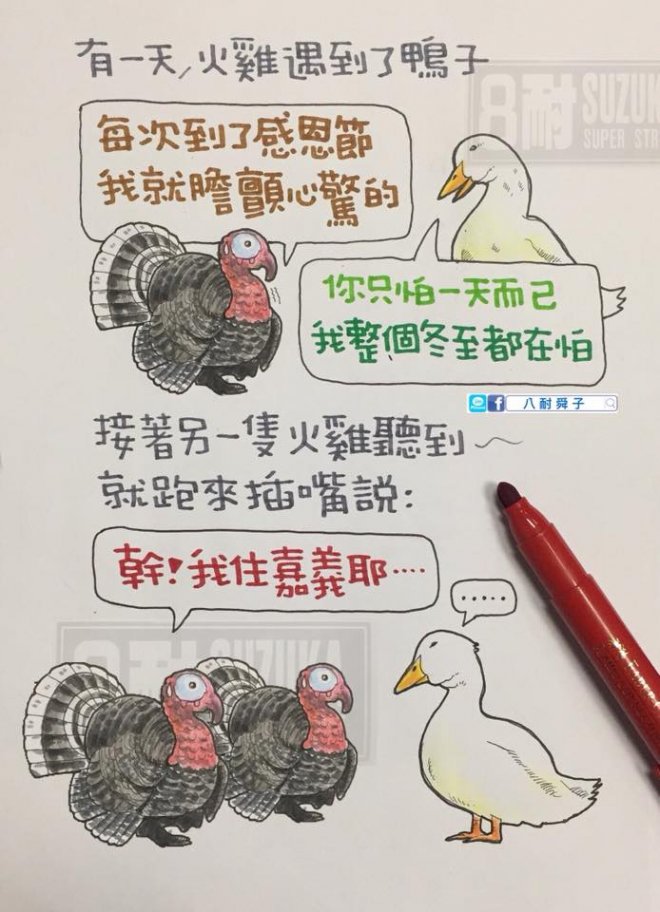 有一天,火雞遇到了鴨子
8耐 SUZUKA
SUPER STR
每次到了感恩節
我就膽顫心驚的
你只怕一天而已
我整個冬至都在怕
八耐舜子
接著另一隻火雞聽到~
就跑來插嘴說:
幹!我住嘉義耶....
.....
8耐 SUZUKA